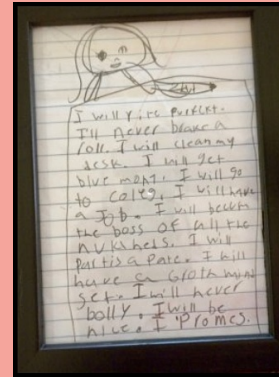 I will rite purfckt.
I'll never brake a
roll. I will clean my
desk. I will get
blue mony. I will go
to coleg. I will have
a Job. I will becum
the boss of all the
I will
I will
have a
get. I will never
bolly. I will be
nice. I Promes.